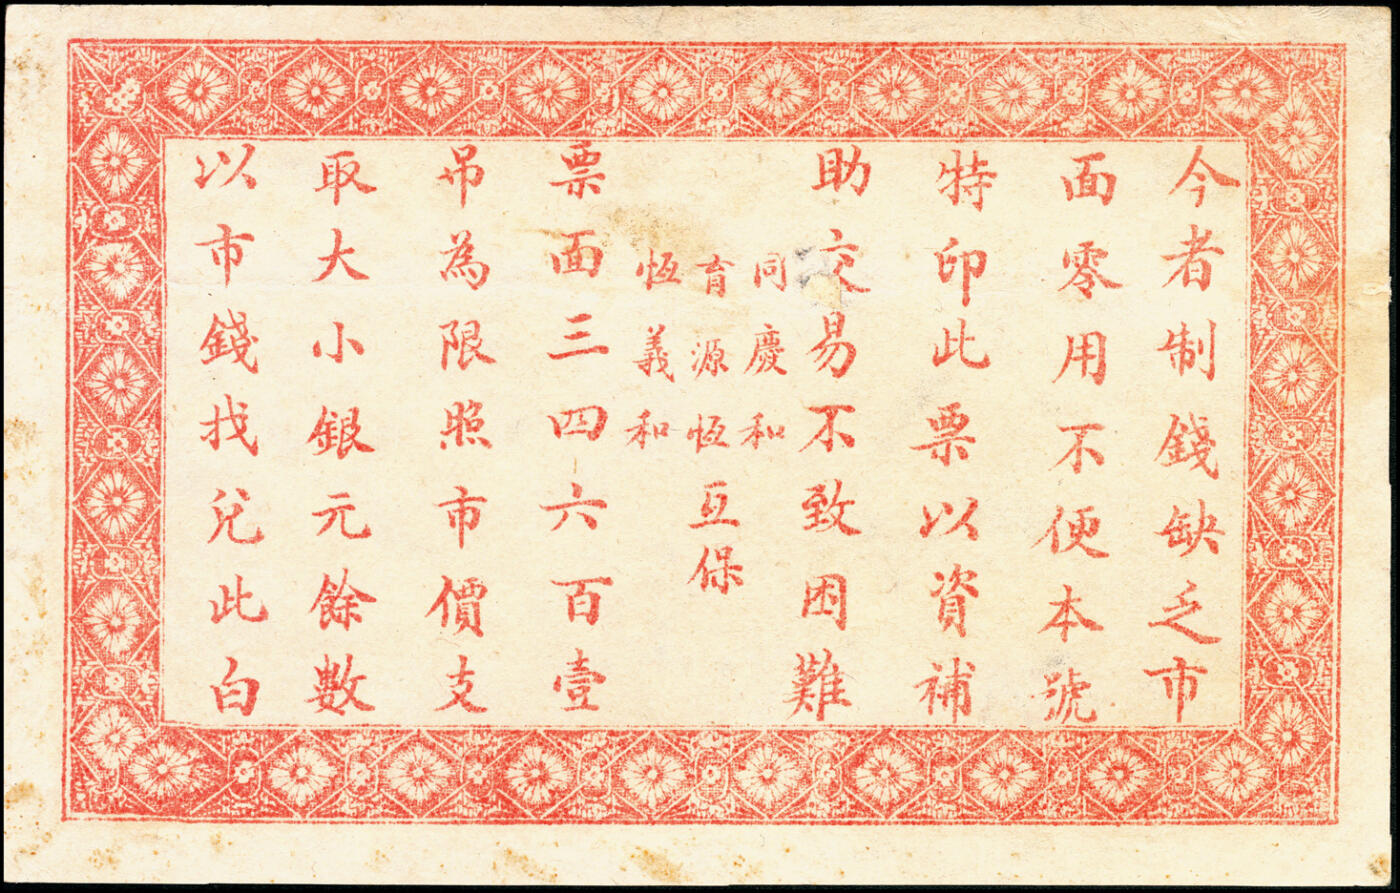 今者制錢缺乏市
面零用不便本號
特印此票以資補
助交易不致困難
同慶和
育源恆互保
恆義和
票面三四六百壹
吊為限照市價支
取大小銀元餘數
以市錢找兌此白